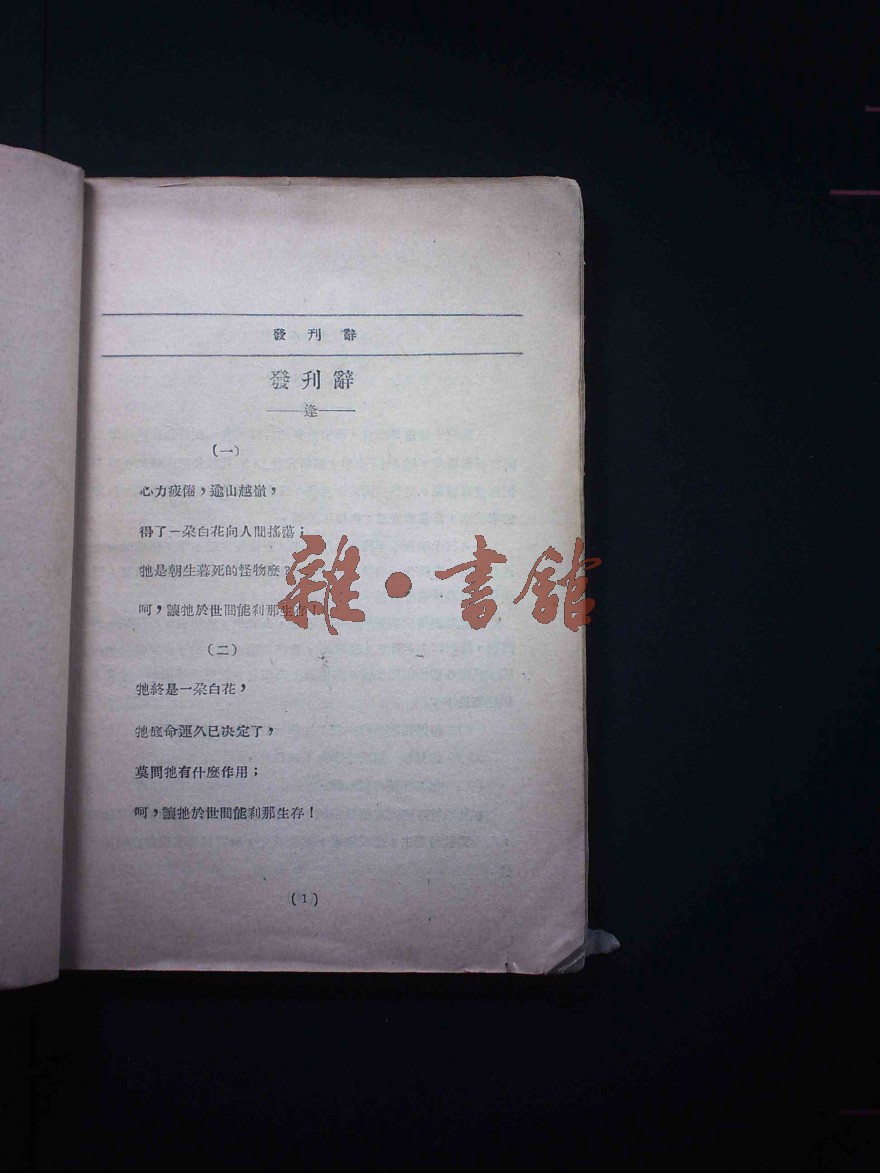 發刊辭
發刊辭
——逢——
(一)
心力疲倦，逾山越嶺，
得了一朶白花向人間搖蕩；
牠是朝生暮死的怪物麼？
呵，讓牠於世間能刹那生存！
(二)
牠終是一朶白花，
牠底命運久已决定了，
莫問牠有什麼作用；
呵，讓牠於世間能刹那生存！
(1)
雜·書館